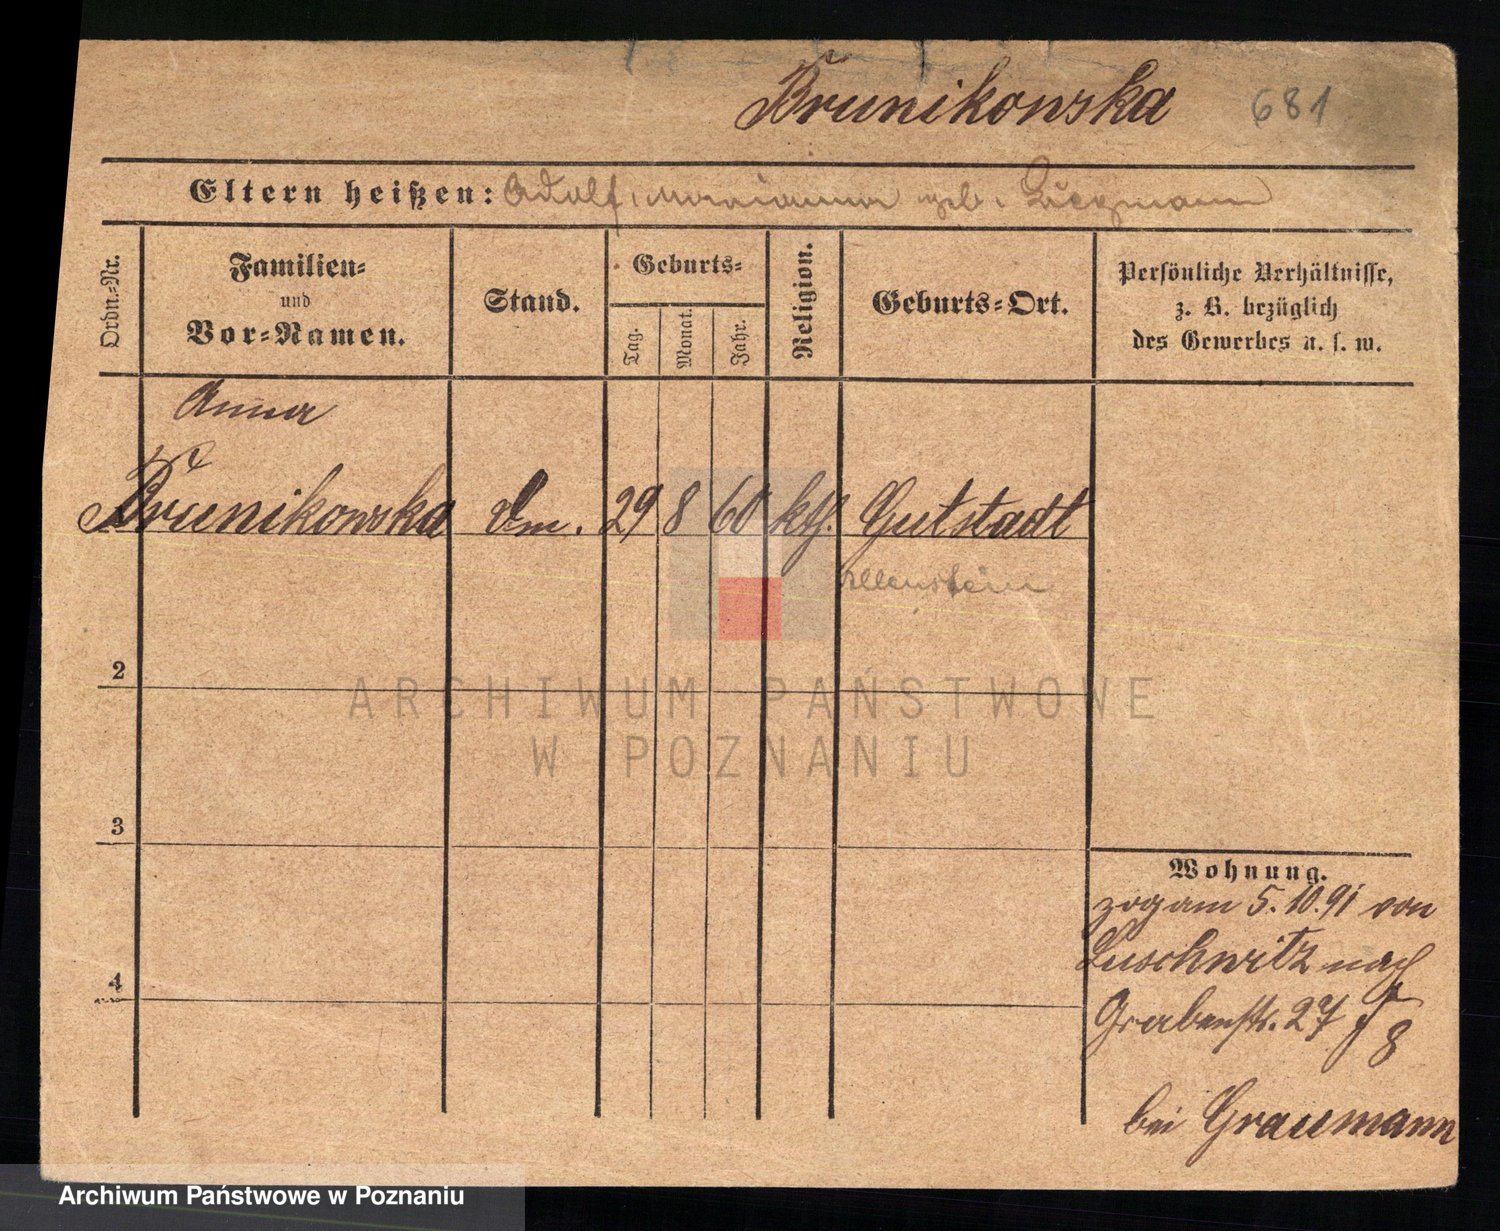 Brunikowska 681
Eltern heißen: Adolf, Marianna geb.
Ordn.-Nr.
Familien-
und
Vor-Namen.
Stand.
Geburts-
Tag.
Monat.
Jahr.
Religion.
Geburts-Ort.
Persönliche Verhältnisse,
z. B. bezüglich
des Gewerbes u. s. w.
Anna
Brunikowska 29 8 60 kth. Gutstadt
Allenstein
2
3
4
Wohnung.
zog am 5.10.91 von
Luschwitz nach
Grabenstr. 27
8
bei Graumann
ARCHIWUM PAŃSTWOWE
W POZNANIU
Archiwum Państwowe w Poznaniu